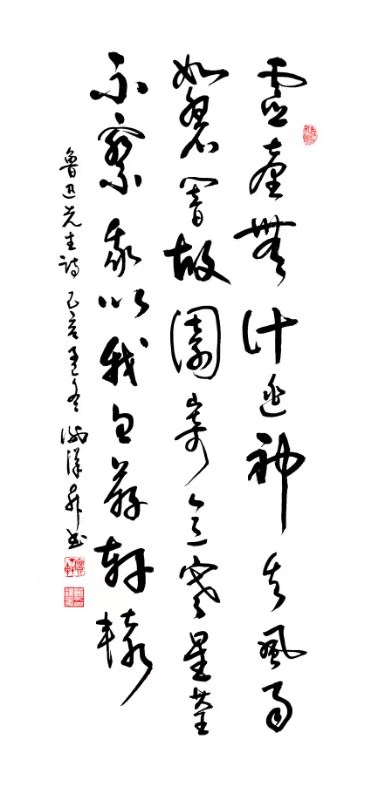 靈臺無計逃神矢風雨
如磐闇故園寄意寒星荃
不察我以我血薦軒轅
魯迅先生詩 己亥 冬 書